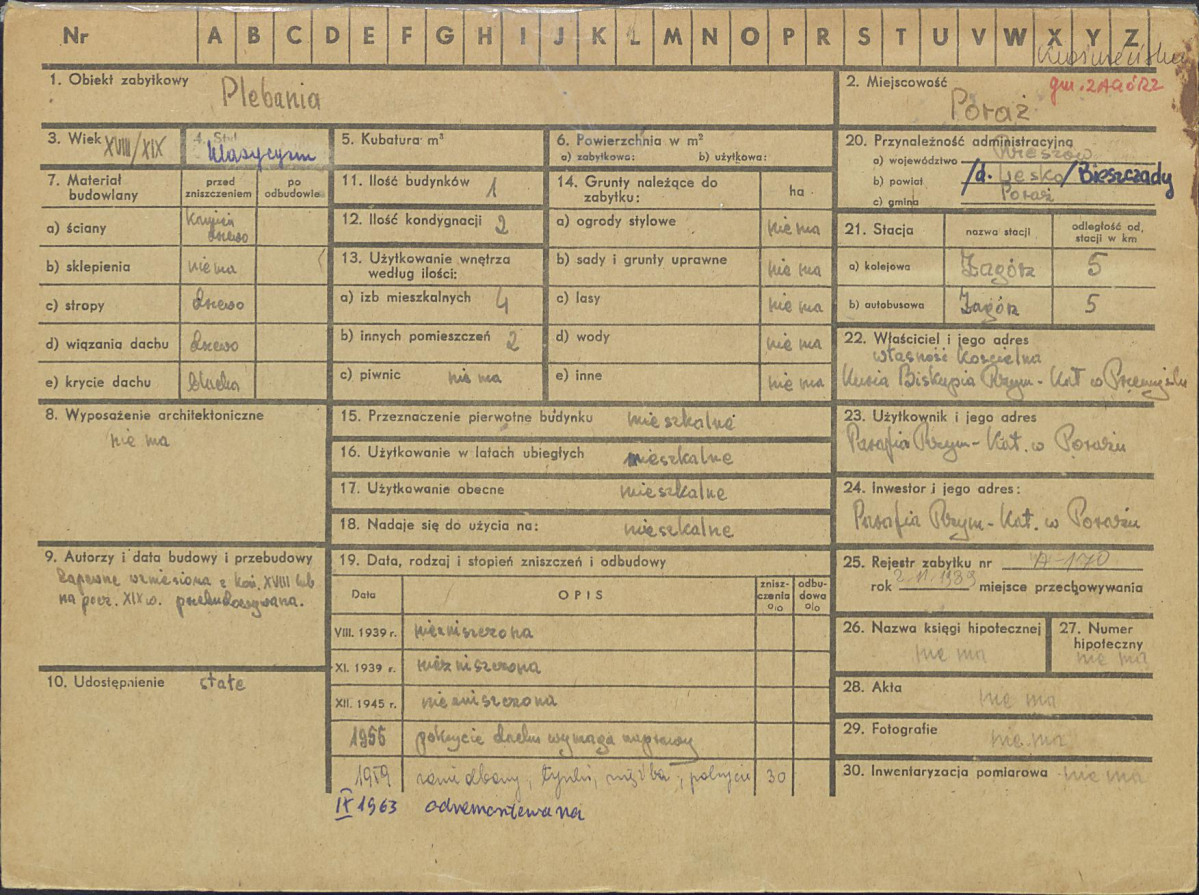 Nr A B C D E F G H I J K L M N O P R S T U V W X Y Z
1. Obiekt zabytkowy Plebania
2. Miejscowość gm. ZAGÓRZ
Poraż
3. Wiek XVIII/XIX
4. Styl Klasycyzm
5. Kubatura m³
6. Powierzchnia w m²
a) zabytkowa: b) użytkowa:
20. Przynależność administracyjna
a) województwo Rzeszów
b) powiat /d. Lesko/Bieszczady
c) gmina Poraż
7. Materiał budowlany
przed zniszczeniem
po odbudowie
a) ściany kamień drzewo
b) sklepienia nie ma
c) stropy drzewo
d) wiązania dachu drzewo
e) krycie dachu blacha
11. Ilość budynków 1
12. Ilość kondygnacji 2
13. Użytkowanie wnętrza według ilości:
a) izb mieszkalnych 4
b) innych pomieszczeń 2
c) piwnic nie ma
14. Grunty należące do zabytku: ha
a) ogrody stylowe nie ma
b) sady i grunty uprawne nie ma
c) lasy nie ma
d) wody nie ma
e) inne nie ma
21. Stacja nazwa stacji odległość od, stacji w km
a) kolejowa Zagórz 5
b) autobusowa Zagórz 5
22. Właściciel i jego adres
własność kościelna
Kuria Biskupia Rzym-Kat w Przemyślu
8. Wyposażenie architektoniczne
nie ma
15. Przeznaczenie pierwotne budynku mieszkalne
16. Użytkowanie w latach ubiegłych mieszkalne
17. Użytkowanie obecne mieszkalne
18. Nadaje się do użycia na: mieszkalne
23. Użytkownik i jego adres
Parafia Rzym-Kat. w Porażu
24. Inwestor i jego adres:
Parafia Rzym-Kat. w Porażu
9. Autorzy i data budowy i przebudowy
Zapewne wzniesiona z koń. XVIII lub
na pocz. XIX w. przebudowywana.
10. Udostępnienie stałe
19. Data, rodzaj i stopień zniszczeń i odbudowy
Data OPIS zniszczenia o/o odbudowa o/o
VIII. 1939 r. niezniszczona
XI. 1939 r. niezniszczona
XII. 1945 r. niezniszczona
1956 pokrycie dachu wymaga naprawy
1959 tynki, pokrycie 30
IX 1963 odremontowana
25. Rejestr zabytku nr A-170
rok 1989 miejsce przechowywania
26. Nazwa księgi hipotecznej
nie ma
27. Numer hipoteczny
nie ma
28. Akta nie ma
29. Fotografie nie ma
30. Inwentaryzacja pomiarowa nie ma